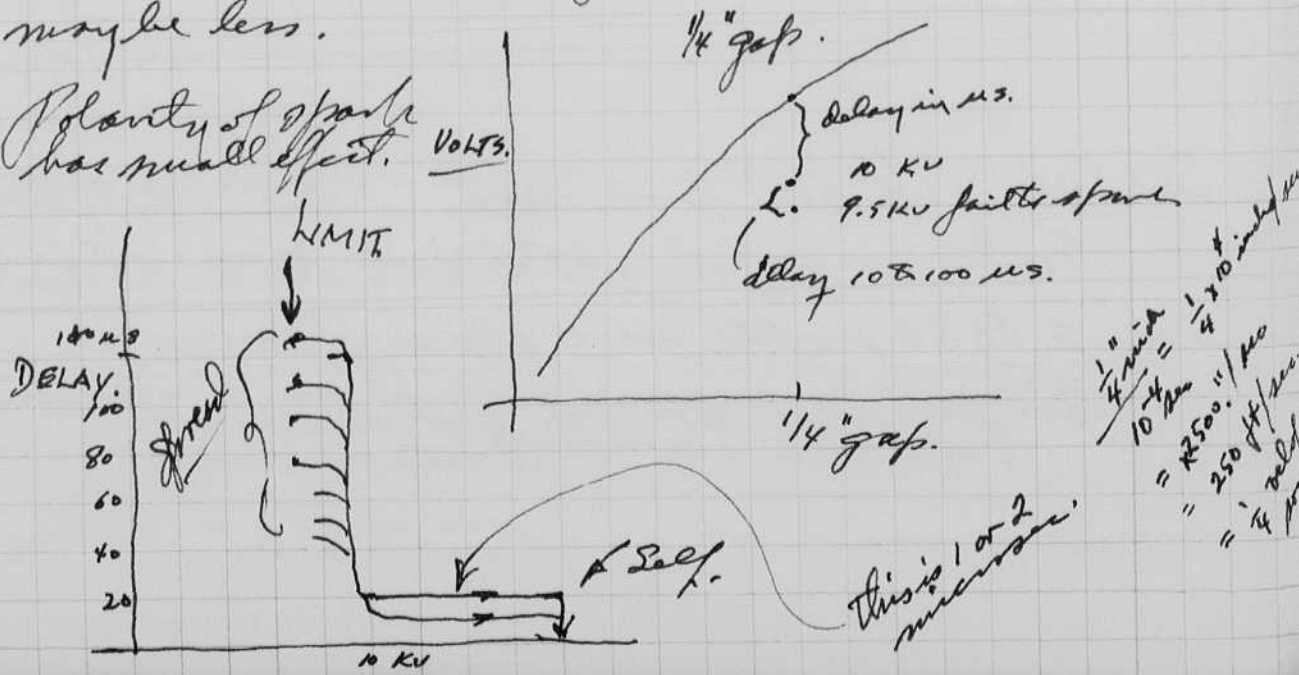 may be less.
Polarity of spark
has small effect.
VOLTS.
1/4" gap.
delay in us.
10 KV
L.
9.5 KV fails to spark
delay 10 to 100 us.
1/4" gap.
LIMIT
DELAY.
100
80
60
40
20
Spread
10 KV
Self.
This is 1 or 2
microsec.
1/4" inch
10⁻⁴ sec
= 1/4 x 10⁴ inches/sec
= 2500."/sec
" 250 ft/sec.
= 1/4